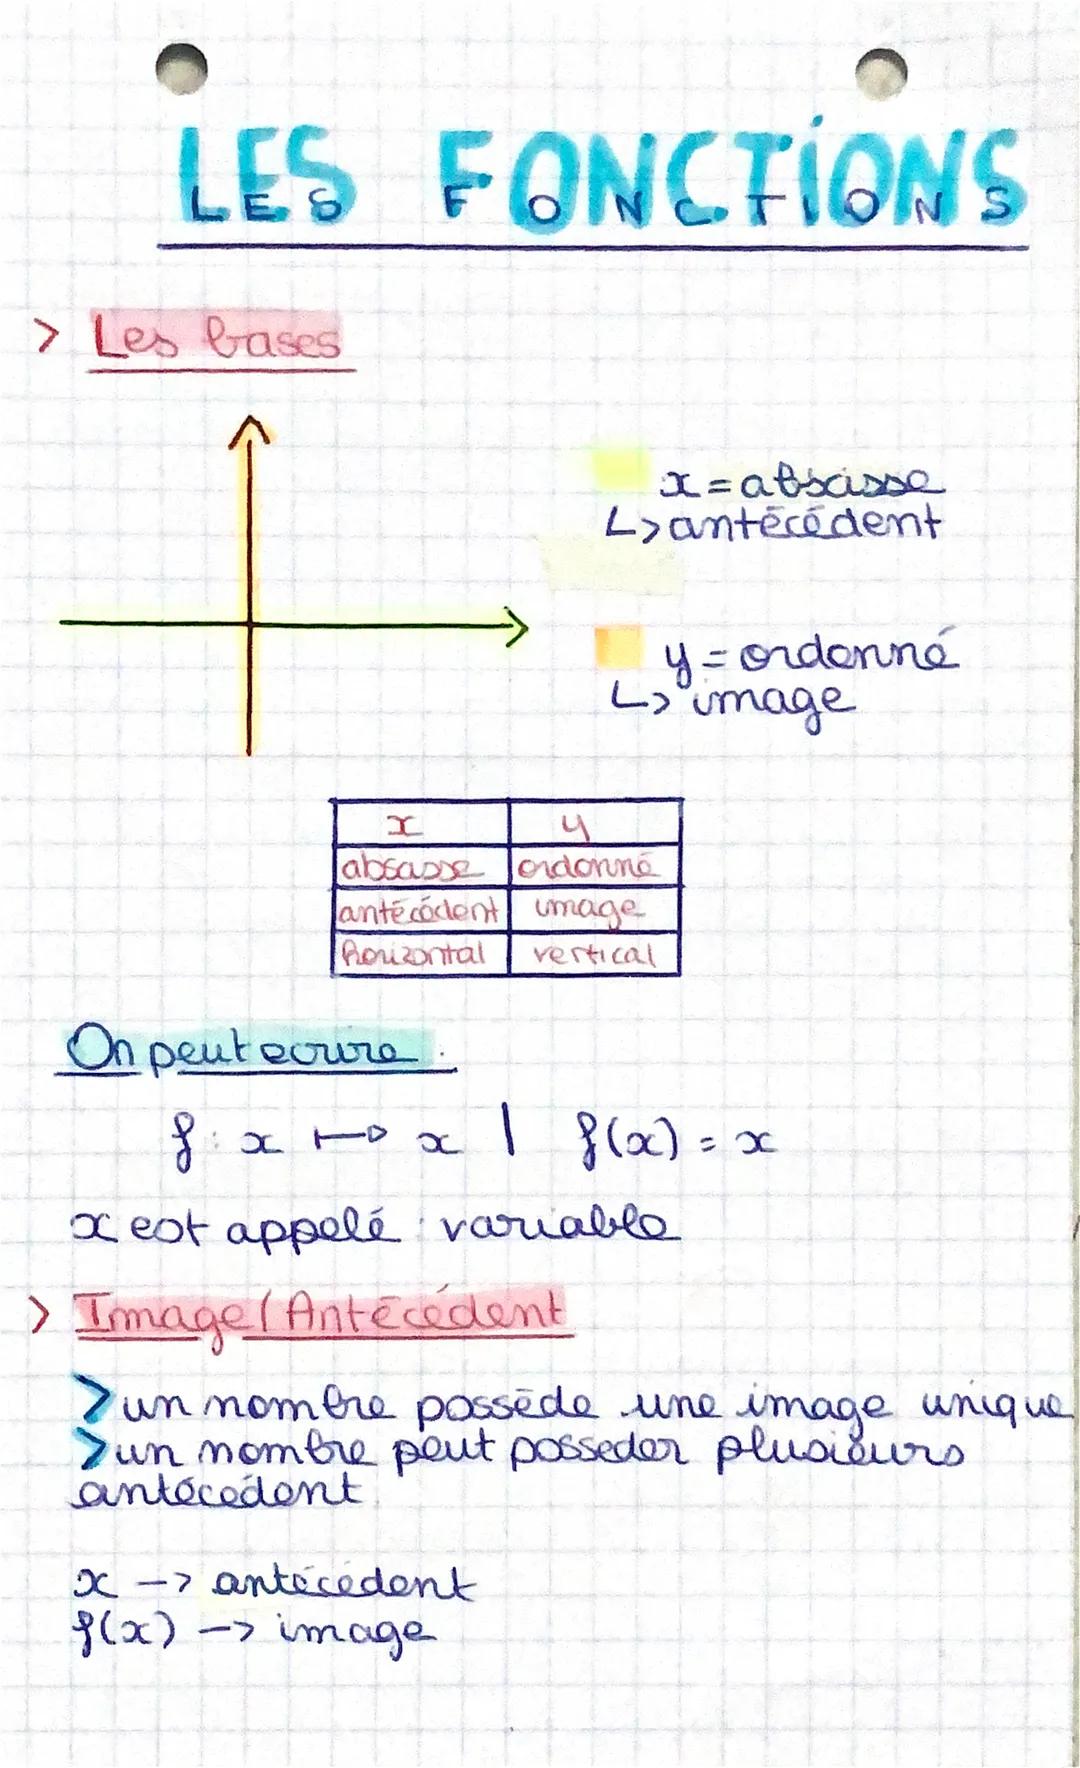 LES FONCTIONS
LES FONCTIONS
> Les bases
x = abscisse
↳ antécédent
y = ordonné
↳ image
x y
abscisse ordonné
antécédent image
horizontal vertical
On peut ecrire :
f : x ↦ x | f(x) = x
x est appelé : variable
> Image / Antécédent
> un nombre possède une image unique
> un nombre peut posseder plusieurs
antécédent
x -> antécédent
f(x) -> image